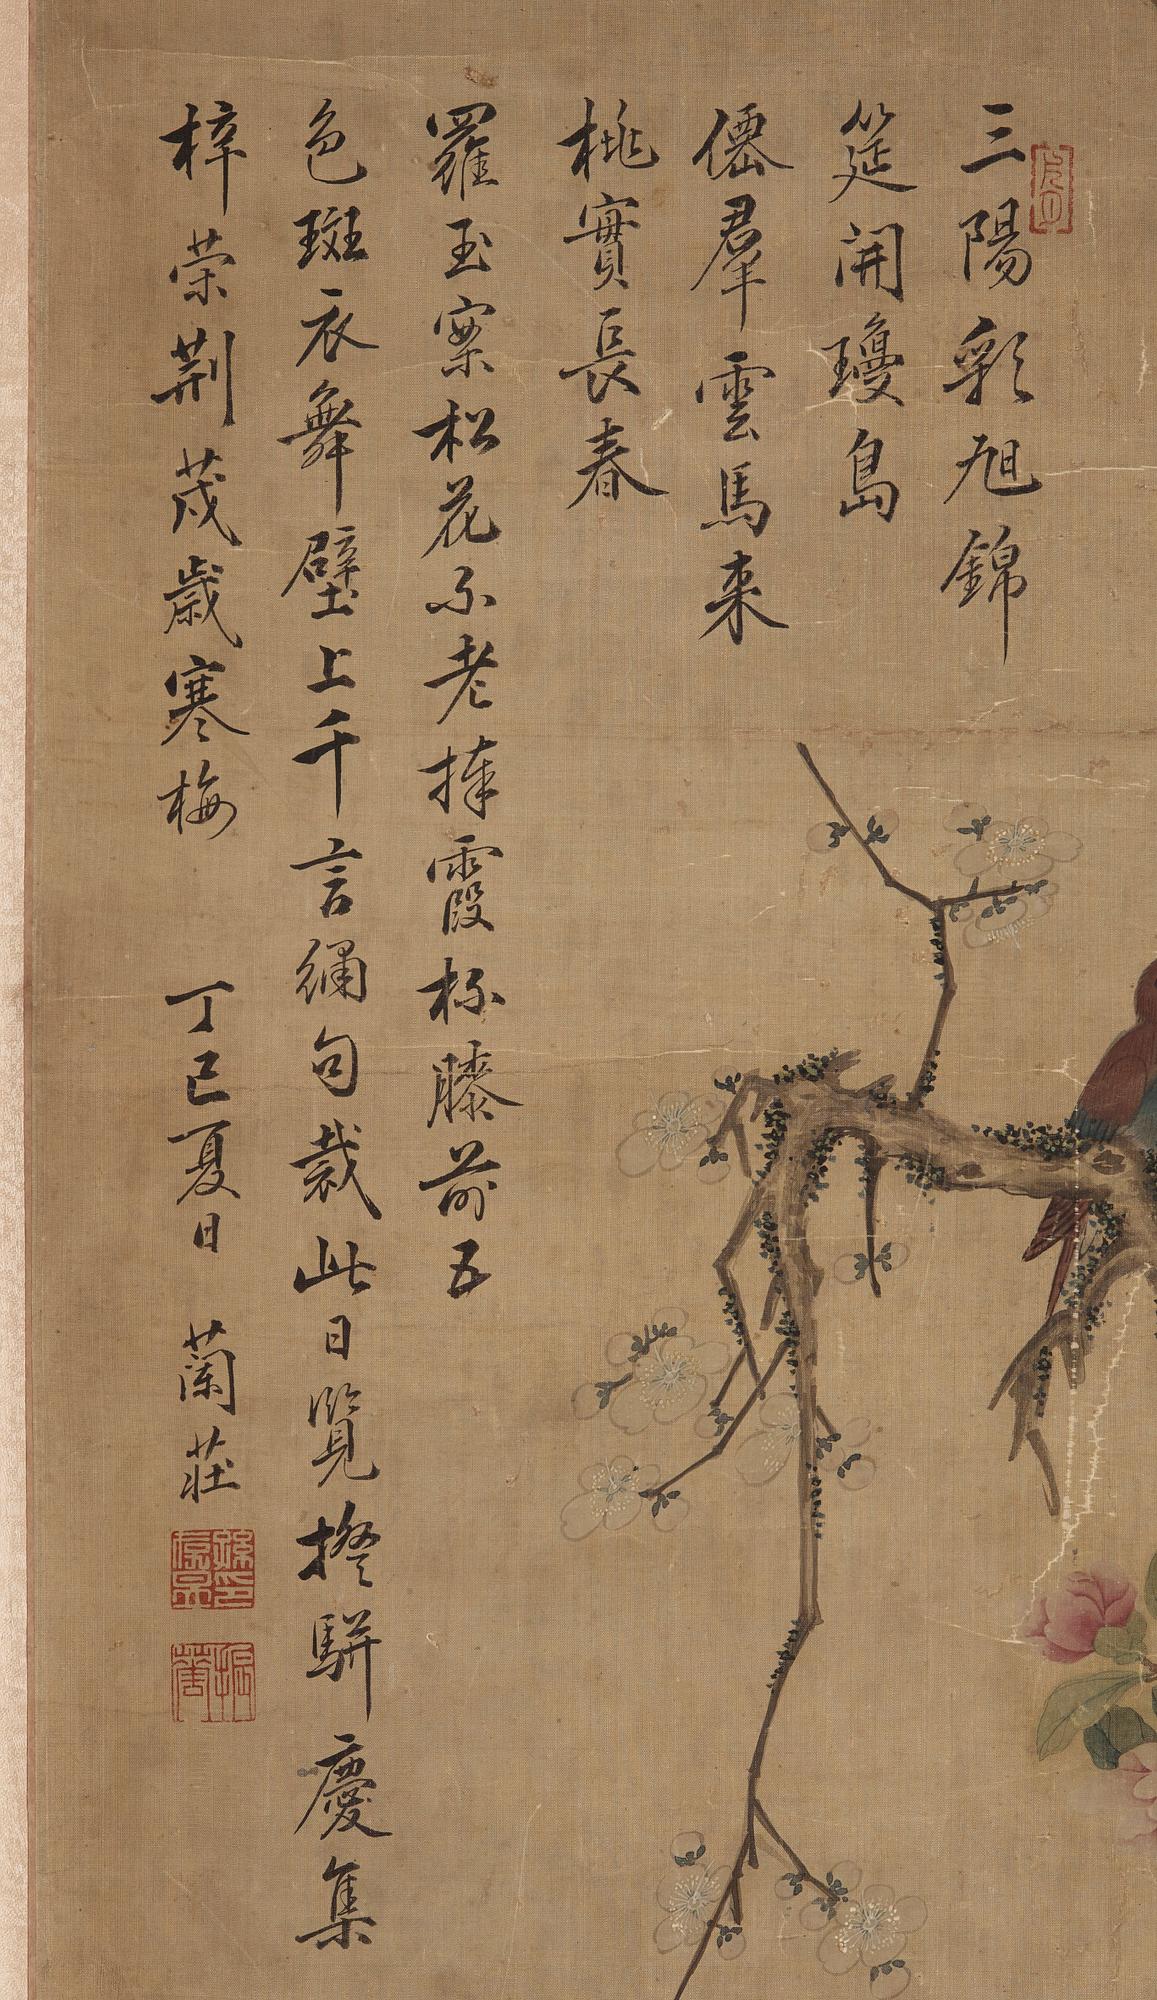 三陽彩旭錦
筵開瓊島
僊羣雲馬来
桃實長春
羅玉案松花不老捧霞杯膝前五
色斑衣舞壁上千言繡句裁此日覽揆駢慶集
梓荣荆茂歲寒梅 丁巳夏日 蘭莊